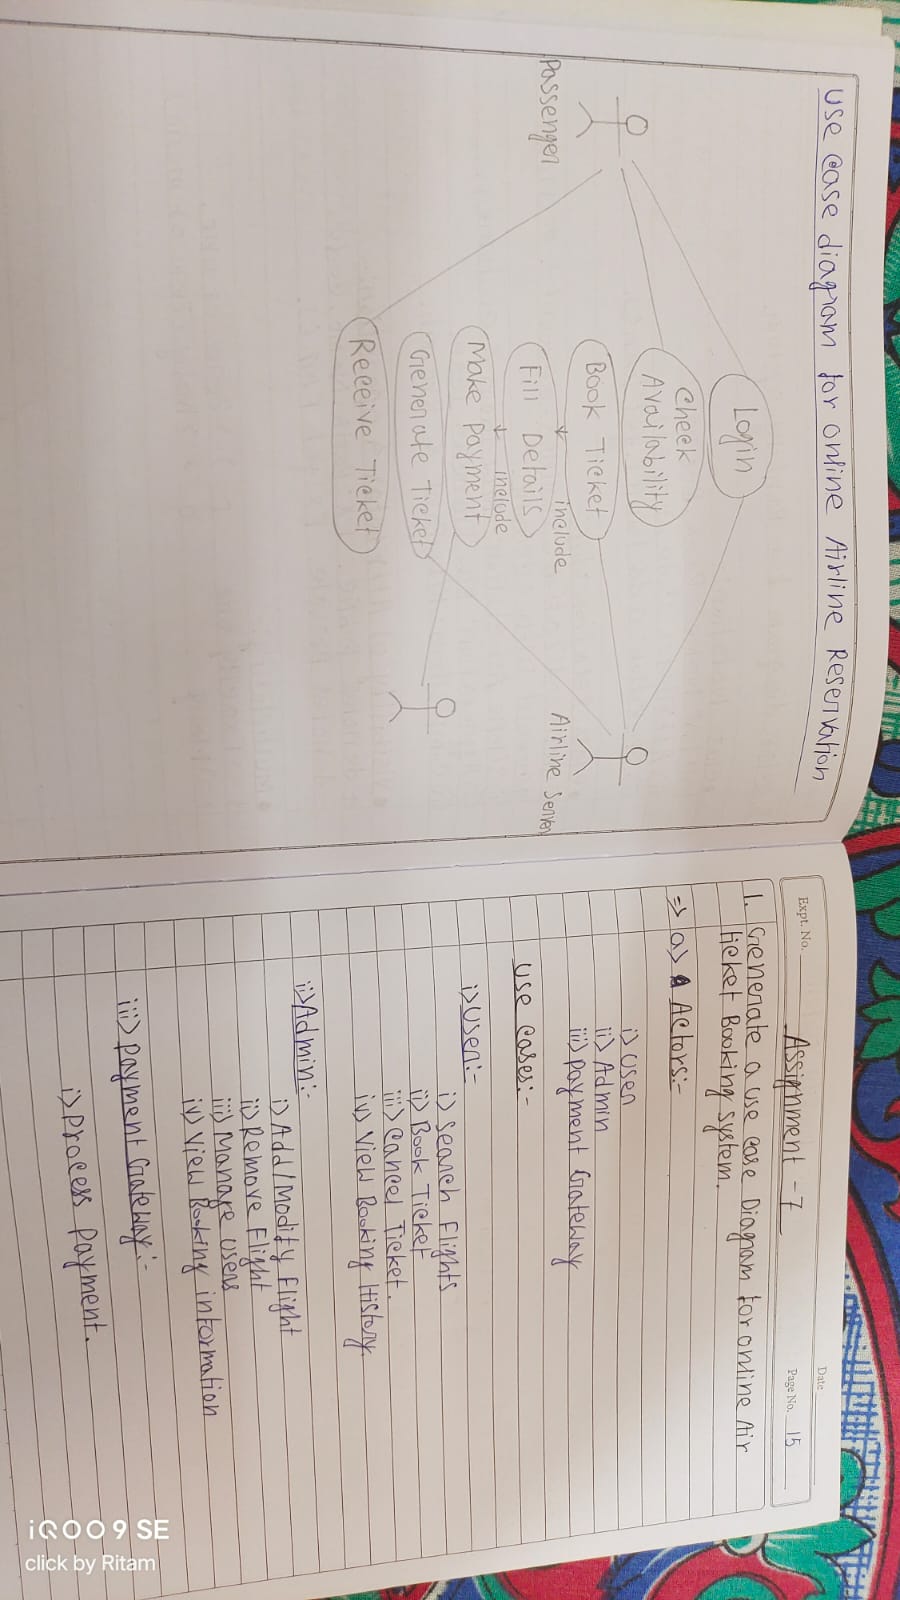 Use Case diagram for online Airline Reservation
Login
Check
Availability
Book Ticket
include
Fill Details
include
Make Payment
Generate Ticket
Receive Ticket
Passenger
Airline Server
Date
Expt. No.
Assignment - 7
Page No. 15
1. Generate a use case Diagram for online Air
ticket Booking system.
=> a) Actors:-
i) User
ii) Admin
iii) Payment Gateway
Use Cases:-
i) User:-
i) Search Flights
ii) Book Ticket
iii) Cancel Ticket.
iv) View Booking History.
ii) Admin:-
i) Add/Modify Flight
ii) Remove Flight
iii) Manage users
iv) View Booking information
iii) Payment Gateway:-
i) Process Payment.
iQOO 9 SE
click by Ritam